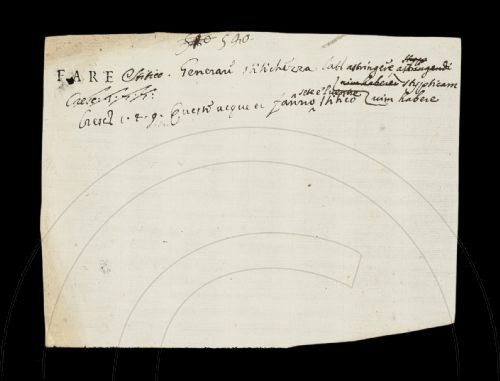 540.
FARE Stitico. Generare stitichezza. Lat. astringere, astringendi
vim habere stypticam
sete e
Cresc. 1. 4. 9. Queste acque fanno stitico vim habere